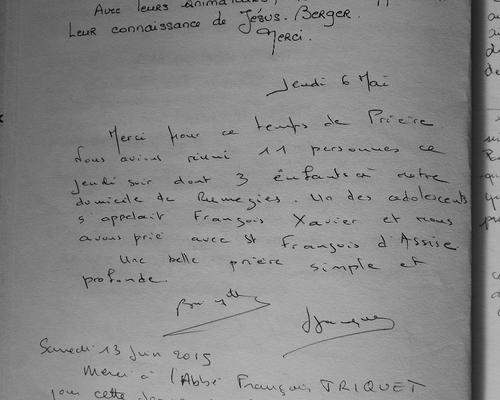 Avec leurs animateurs,
Leur connaissance de Jésus. Berger.
Merci.
Jeudi 6 Mai
Merci pour ce temps de Prière
Nous avions réuni 11 personnes ce
jeudi soir dont 3 enfants à notre
domicile de Rumegies. Un des adolescents
s'appelait François Xavier et nous
avons prié avec St François d'Assise
Une belle prière simple et
profonde.
Samedi 13 Juin 2015
Merci à l'Abbé François TRIQUET
pour cette